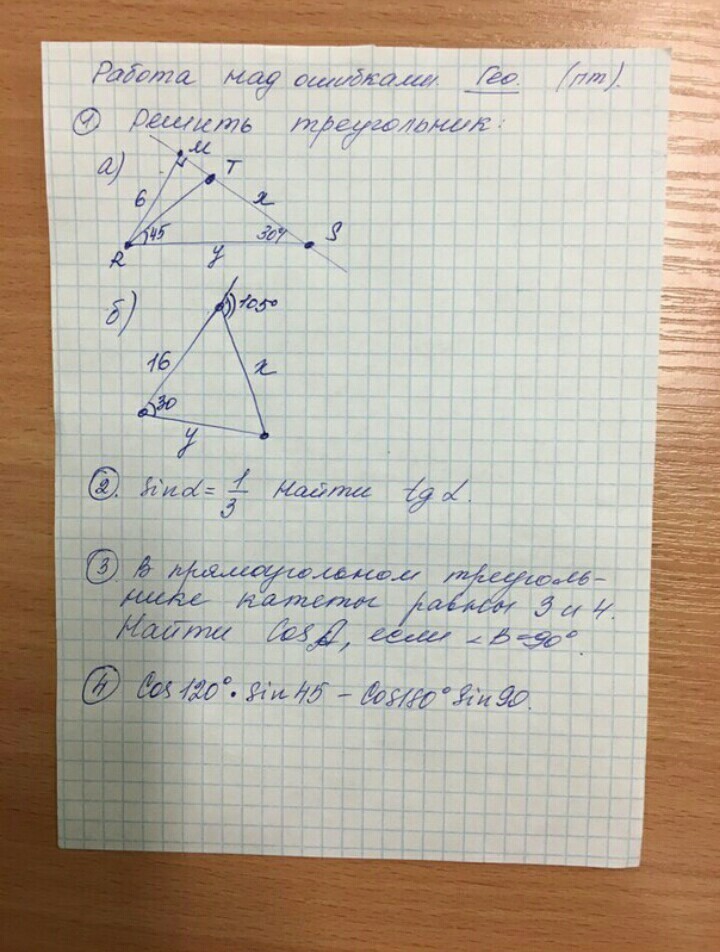 Работа над ошибками. Гео. (пт).
① Решить треугольник:
а)
M
T
6
x
45
30°
S
R
y
б)
105°
16
x
30
y
②. Sinα = 1/3 Найти tgα.
③ В прямоугольном треуголь-
нике катеты равны 3 и 4.
Найти CosA, если ∠B=90°.
④ Cos120°·Sin45 – Cos180°Sin90.